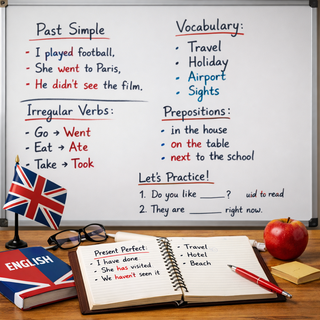 Past Simple
- I played football,
- She went to Paris,
- He didn't see the film.
Irregular Verbs:
- Go → Went
- Eat → Ate
- Take → Took
Vocabulary:
- Travel
- Holiday
- Airport
- Sights
Prepositions:
- in the house
- on the table
- next to the school
Let's Practice!
1. Do you like ____? uid to read
2. They are ____ right now.
ENGLISH
Present Perfect
- I have done
- She has visited
- We haven't seen it
- Travel
- Hotel
- Beach